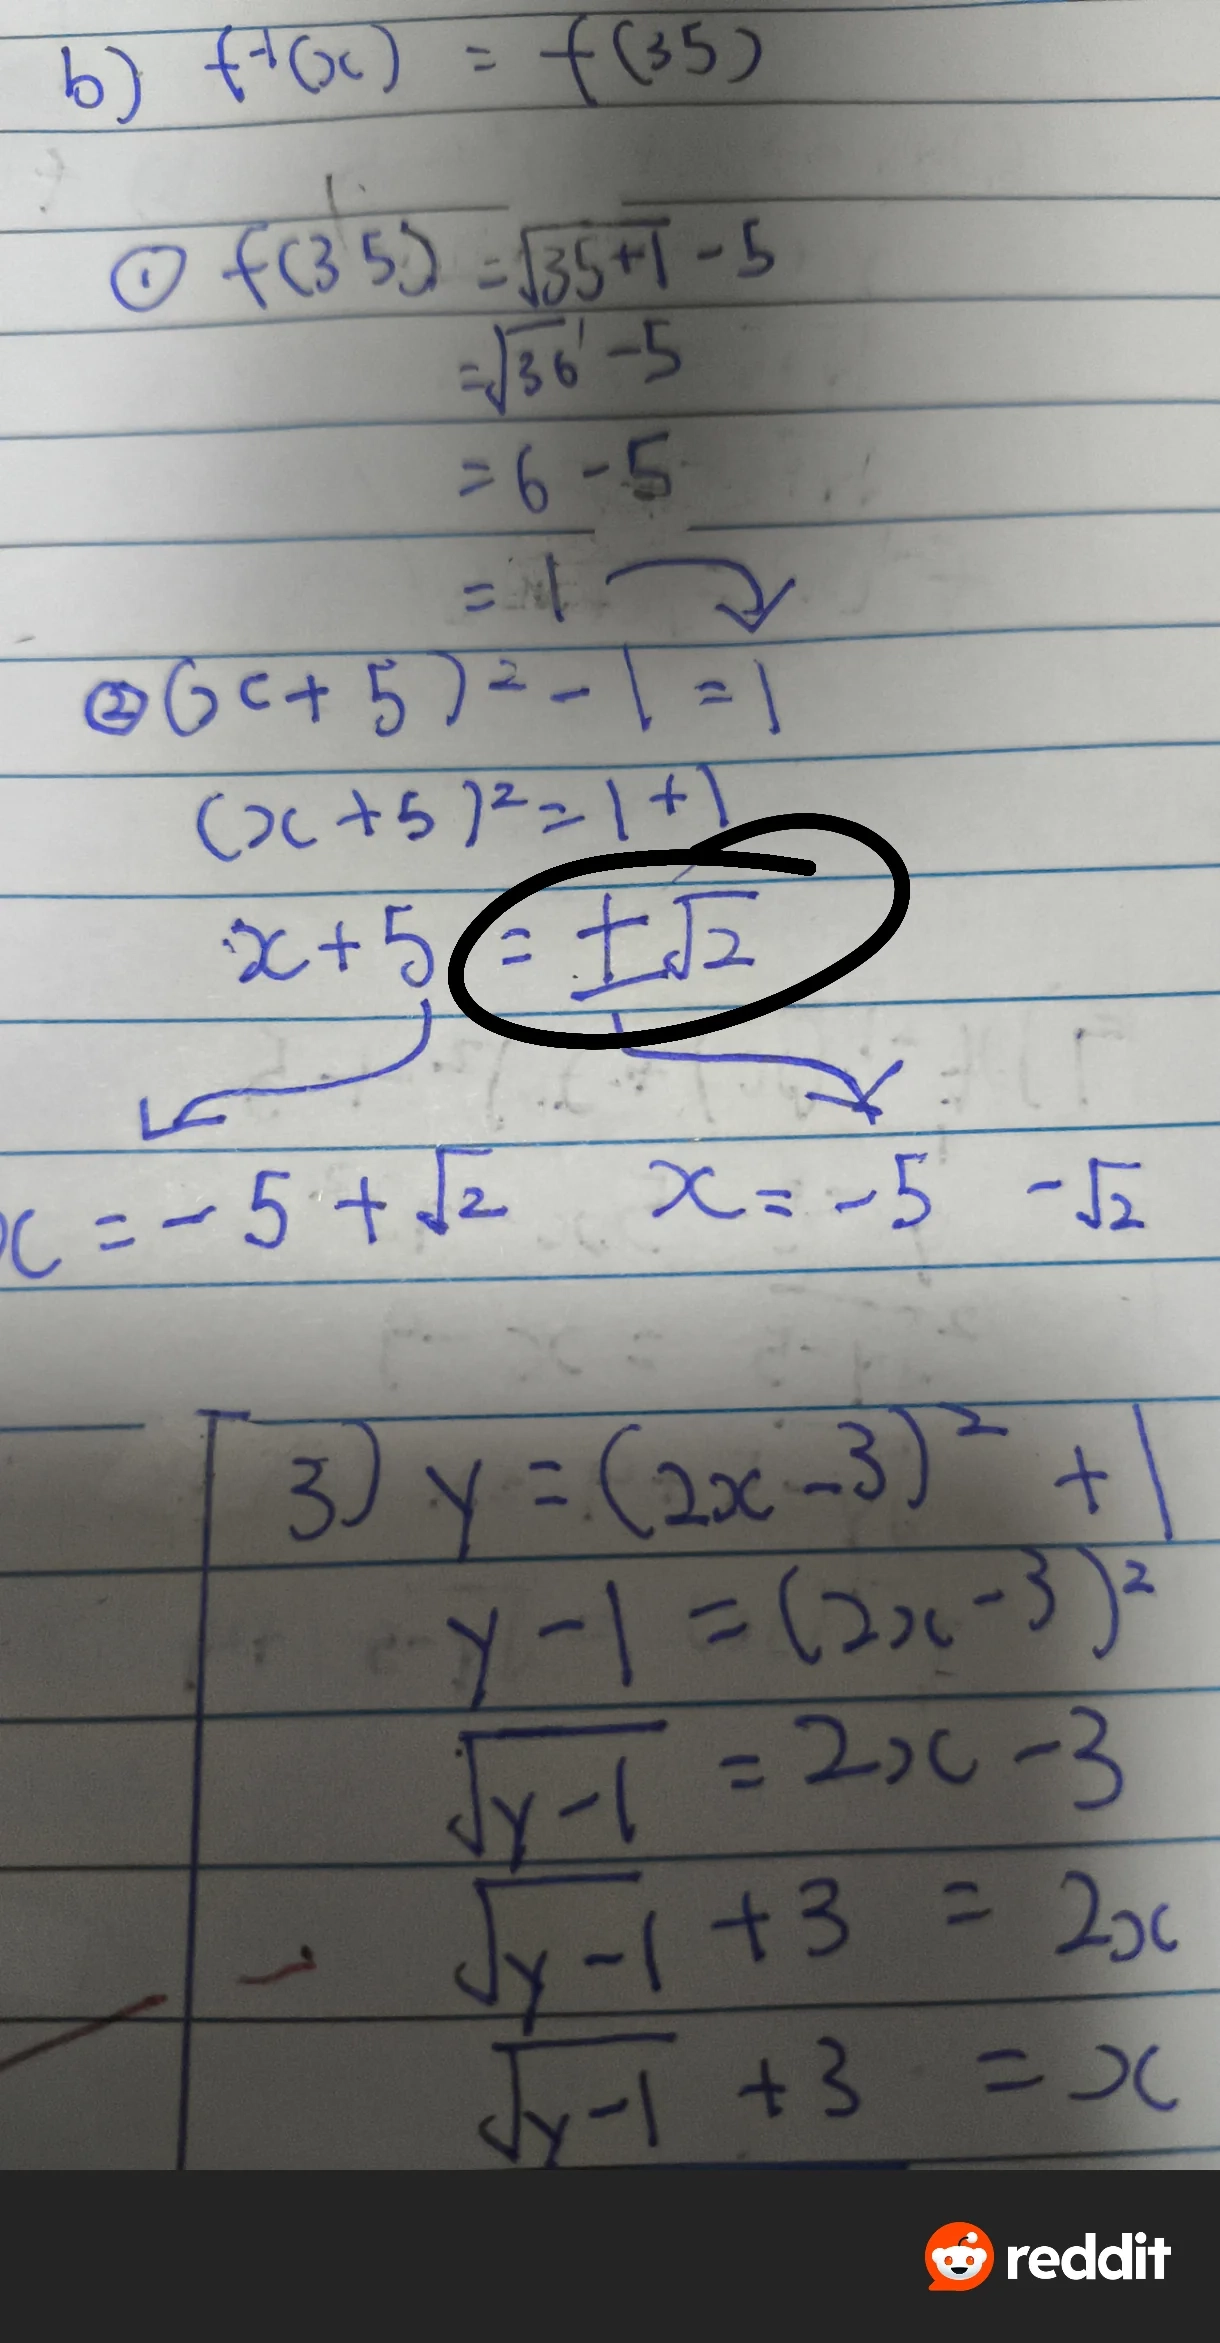 b) f⁻¹(x) = f(35)
① f(35) = √35+1 - 5
= √36 - 5
= 6 - 5
= 1
② (x + 5)² - 1 = 1
(x + 5)² = 1 + 1
x + 5 = ±√2
x = - 5 + √2 x = - 5 - √2
3) y = (2x - 3)² + 1
y - 1 = (2x - 3)²
√y - 1 = 2x - 3
√y - 1 + 3 = 2x
√y - 1 + 3 = x
reddit